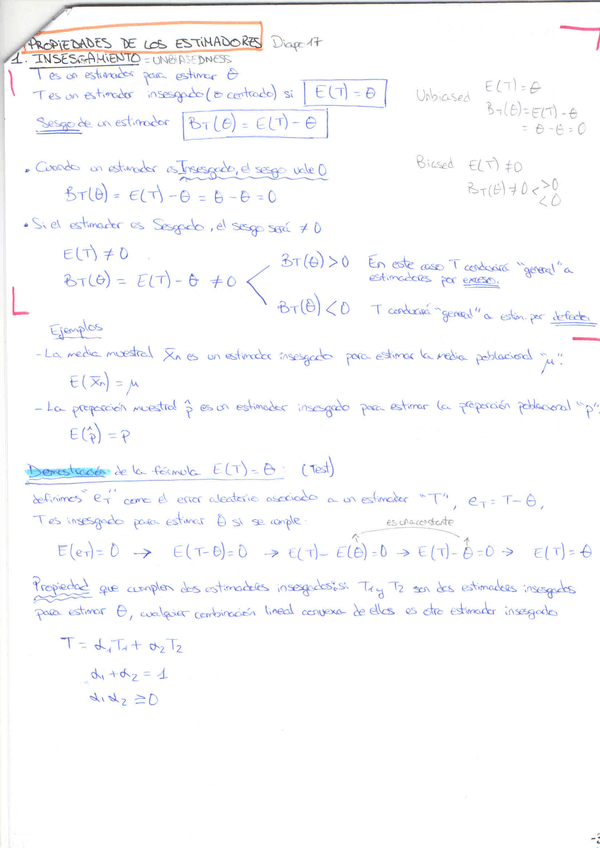 PROPIEDADES DE LOS ESTIMADORES Diapo 17
1. INSESGAMIENTO = UNBIASEDNESS
T es un estimador para estimar θ
T es un estimador insesgado (o centrado) si E(T) = θ
Sesgo de un estimador B_T(θ) = E(T) - θ
Unbiased E(T) = θ
B_T(θ) = E(T) - θ
= θ - θ = 0
Biased E(T) ≠ 0
B_T(θ) ≠ 0 < >0
<0
• Cuando un estimador es Insesgado, el sesgo vale 0
B_T(θ) = E(T) - θ = θ - θ = 0
• Si el estimador es Sesgado, el sesgo será ≠ 0
E(T) ≠ 0
B_T(θ) = E(T) - θ ≠ 0
B_T(θ) > 0 En este caso T conducirá "general" a
estimadores por exceso.
B_T(θ) < 0 T conducirá "general" a estim. por defecto
Ejemplos
- La media muestral x̄n es un estimador insesgado para estimar la media poblacional "μ".
E(x̄n) = μ
- La proporción muestral p̂ es un estimador insesgado para estimar la proporción poblacional "p".
E(p̂) = p
Demostración de la fórmula E(T) = θ: (Test)
definimos "e_T" como el error aleatorio asociado a un estimador "T", e_T = T - θ,
T es insesgado para estimar θ si se cumple:
es una constante
E(e_T) = 0 → E(T-θ) = 0 → E(T) - E(θ) = 0 → E(T) - θ = 0 → E(T) = θ
Propiedad que cumplen dos estimadores insesgados: si T1 y T2 son dos estimadores insesgados
para estimar θ, cualquier combinación lineal convexa de ellos es otro estimador insesgado
T = α1T1 + α2T2
α1 + α2 = 1
α1 α2 ≥ 0